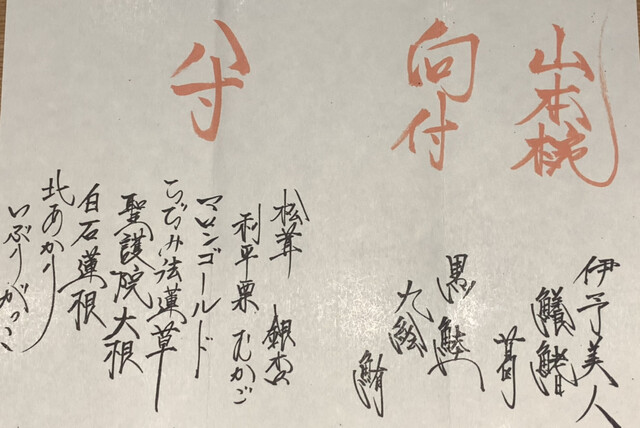 山本椀
伊予美人
鱶鰭
向付
九絵
鮪
八寸
松茸 銀杏
利平栗 むかご
マロンゴールド
ちぢみ法蓮草
聖護院大根
白石蓮根
北あかり
いぶりがっこ